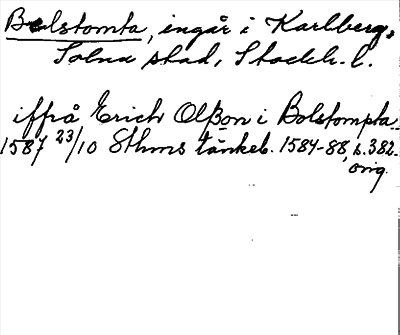 Bolstomta, ingår i Karlberg,
Solna stad, Stockh. l.
iffrå Erich Olßon i Bolstompta
1587 23/10 Sthms tänkeb. 1584-88, s. 382.
orig.